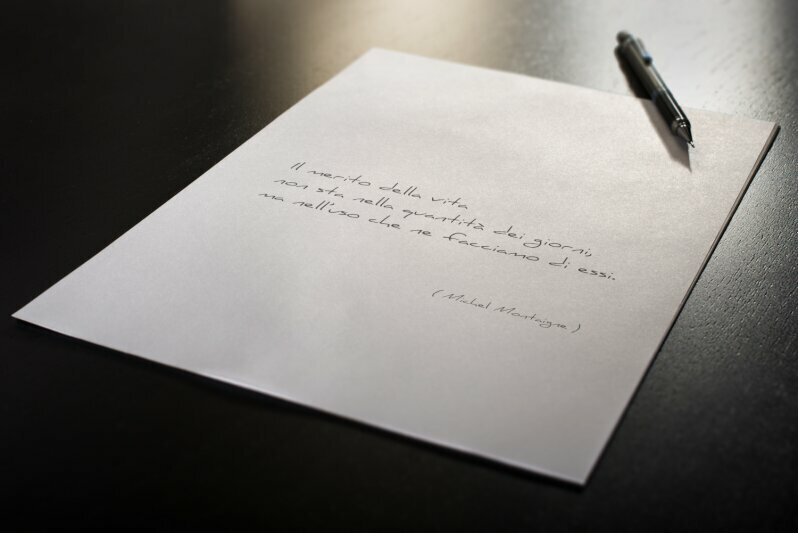 Il merito della vita
non sta nella quantità dei giorni,
ma nell'uso che ne facciamo di essi.
(Michel Montaigne)